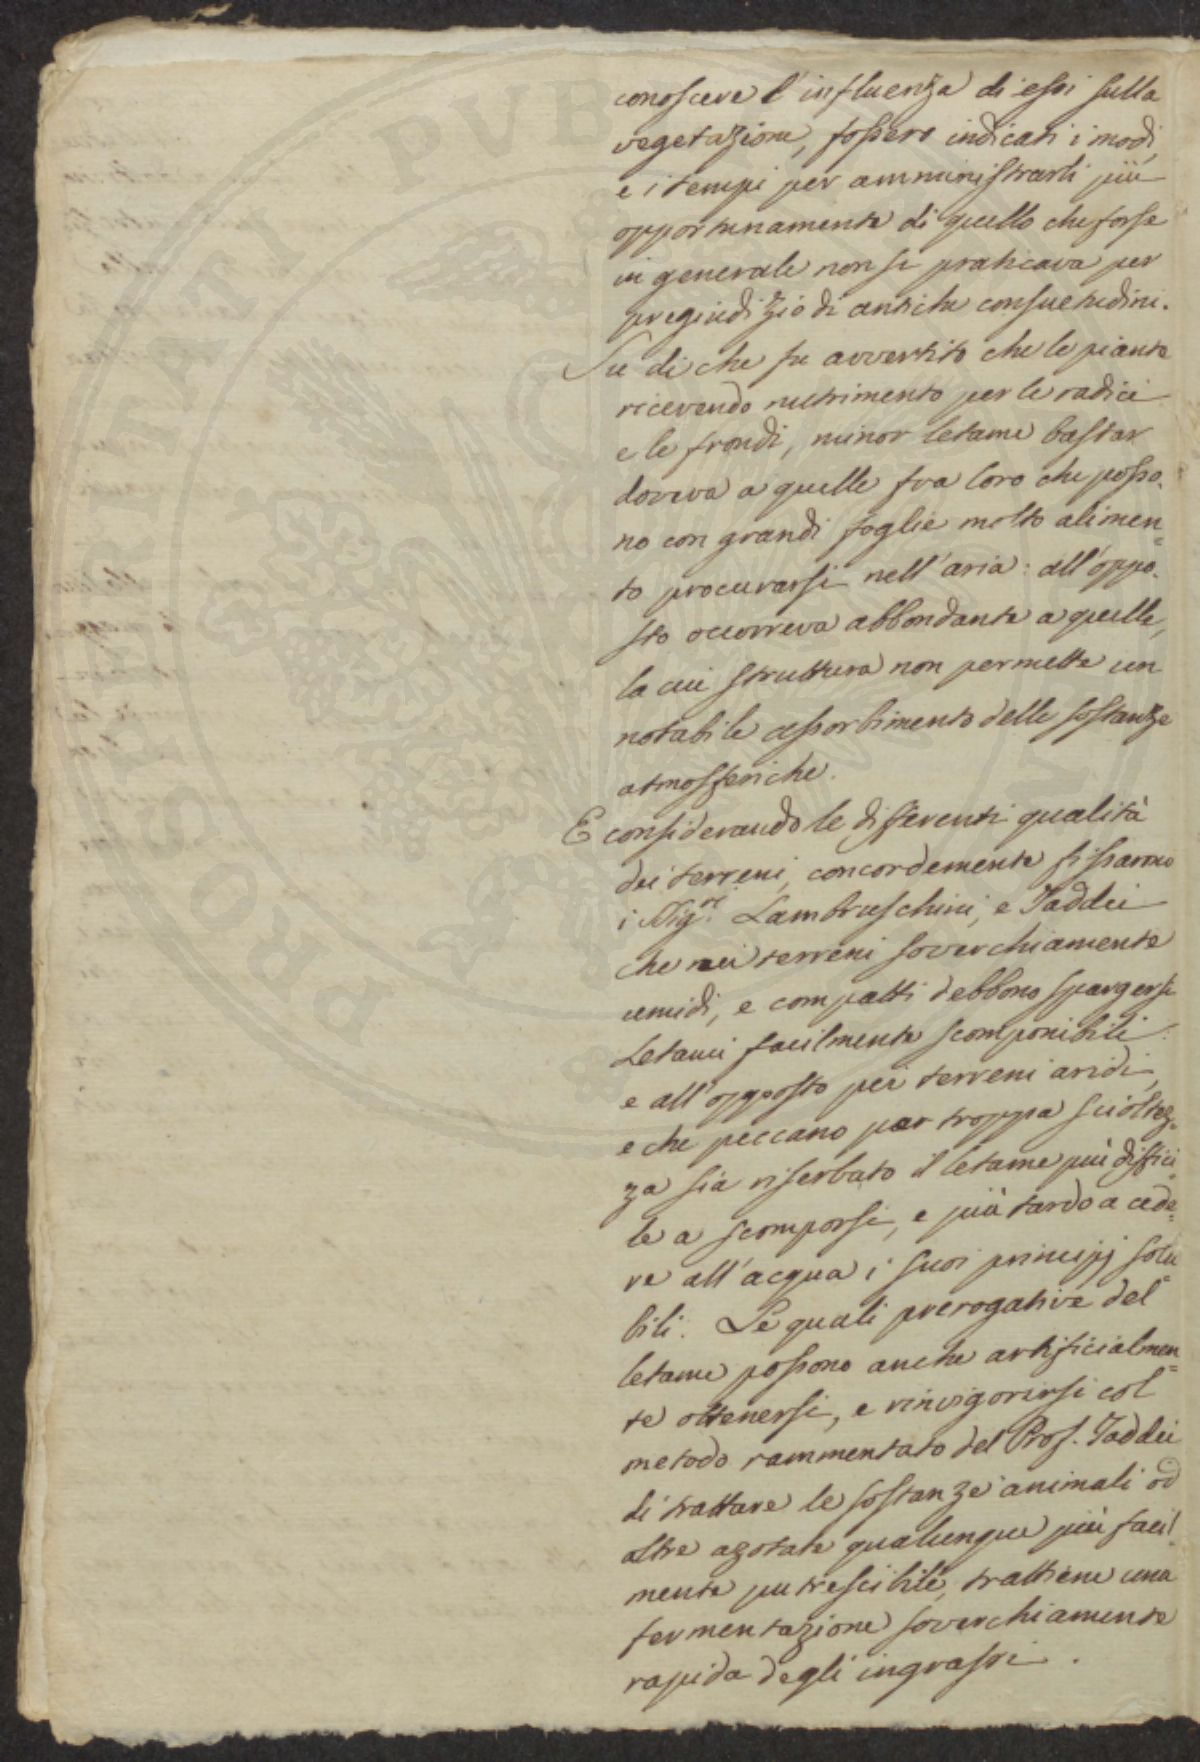 conoscere l'influenza di essi sulla
vegetazione, fossero indicati i modi,
e i tempi per amministrarli più
opportunamente di quello che forse
in generale non si praticava per
pregiudizio di antiche consuetudini.
Su di che fu avvertito che le piante
ricevendo nutrimento per le radici
e le frondi, minor letame bastar
doveva a quelle fra loro che posso-
no con grandi foglie molto alimen=
to procurarsi nell'aria: all'oppo-
sto occorreva abbondante a quelle,
la cui struttura non permette un
notabile assorbimento delle sostanze
atmosferiche.
E considerando le differenti qualità
dei terreni, concordemente fissarono
i Sigri. Lambruschini, e Taddei
che nei terreni soverchiamente
umidi, e compatti debbono spargersi
Letami facilmente scomponibili:
e all'opposto pei terreni aridi,
e che peccano per troppa scioltez=
za sia riserbato il letame più diffici=
le a scomporsi, e più tardo a cede=
re all'acqua i suoi principj solu=
bili. Le quali prerogative del
letame possono anche artificialmen=
te ottenersi, e rinvigorirsi col
metodo rammentato del Prof. Taddei
di trattare le sostanze animali od
altre azotate qualunque più facil=
mente putrescibili, trattiene una
fermentazione soverchiamente
rapida degli ingrassi.
PVBLICATI